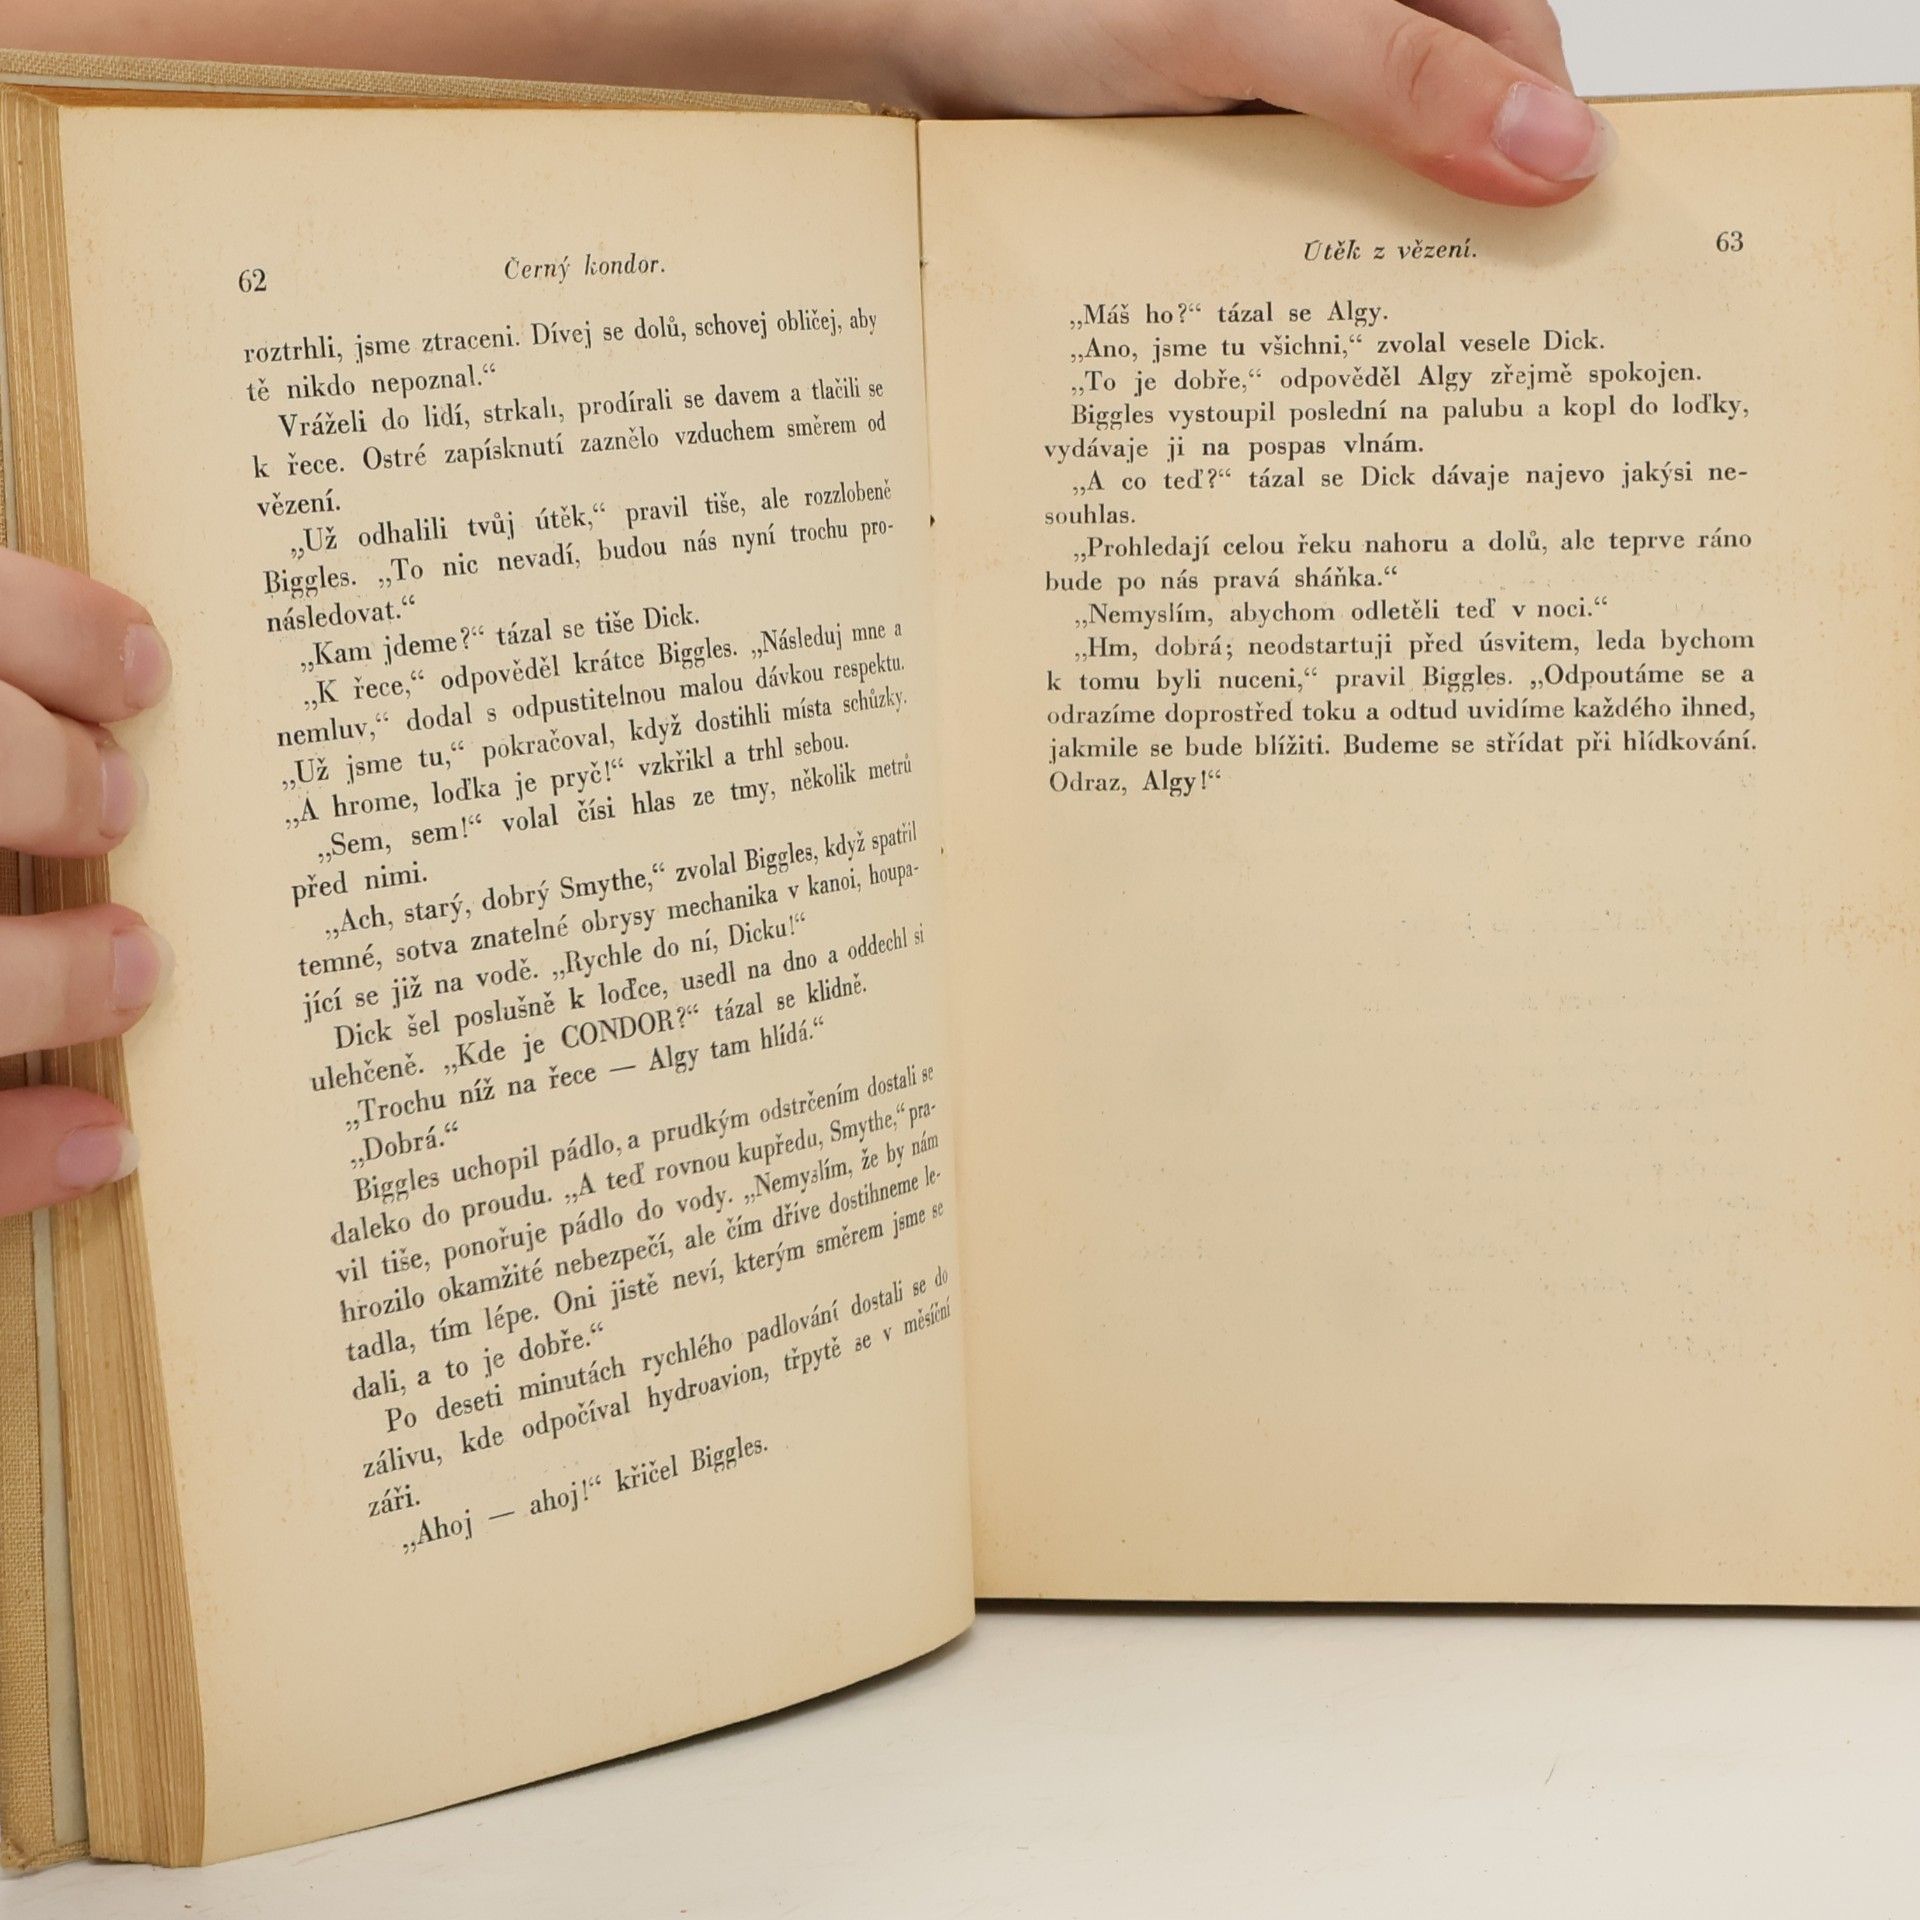 62
Černý kondor.
roztrhli, jsme ztraceni. Dívej se dolů, schovej obličej, aby
tě nikdo nepoznal.“
Vráželi do lidí, strkali, prodírali se davem a tlačili se
k řece. Ostré zapísknutí zaznělo vzduchem směrem od
vězení.
„Už odhalili tvůj útěk,“ pravil tiše, ale rozzlobeně
Biggles. „To nic nevadí, budou nás nyní trochu pro-
následovat.“
„Kam jdeme?“ tázal se tiše Dick.
„K řece,“ odpověděl krátce Biggles. „Následuj mne a
nemluv,“ dodal s odpustitelnou malou dávkou respektu.
„Už jsme tu,“ pokračoval, když dostihli místa schůzky.
„A hrome, loďka je pryč!“ vzkřikl a trhl sebou.
„Sem, sem!“ volal čísi hlas ze tmy, několik metrů
před nimi.
„Ach, starý, dobrý Smythe,“ zvolal Biggles, když spatřil
temné, sotva znatelné obrysy mechanika v kanoi, houpa-
jící se již na vodě. „Rychle do ní, Dicku!“
Dick šel poslušně k loďce, usedl na dno a oddechl si
ulehčeně. „Kde je CONDOR?“ tázal se klidně.
„Trochu níž na řece — Algy tam hlídá.“
„Dobrá.“
Biggles uchopil pádlo, a prudkým odstrčením dostali se
daleko do proudu. „A teď rovnou kupředu, Smythe,“ pra-
vil tiše, ponořuje pádlo do vody. „Nemyslím, že by nám
hrozilo okamžité nebezpečí, ale čím dříve dostihneme le-
tadla, tím lépe. Oni jistě neví, kterým směrem jsme se
dali, a to je dobře.“
Po deseti minutách rychlého padlování dostali se do
zálivu, kde odpočíval hydroavion, třpytě se v měsíční
záři.
„Ahoj — ahoj!“ křičel Biggles.
Útěk z vězení.
63
„Máš ho?“ tázal se Algy.
„Ano, jsme tu všichni,“ zvolal vesele Dick.
„To je dobře,“ odpověděl Algy zřejmě spokojen.
Biggles vystoupil poslední na palubu a kopl do loďky,
vydávaje ji na pospas vlnám.
„A co teď?“ tázal se Dick dávaje najevo jakýsi ne-
souhlas.
„Prohledají celou řeku nahoru a dolů, ale teprve ráno
bude po nás pravá sháňka.“
„Nemyslím, abychom odletěli teď v noci.“
„Hm, dobrá; neodstartuji před úsvitem, leda bychom
k tomu byli nuceni,“ pravil Biggles. „Odpoutáme se a
odrazíme doprostřed toku a odtud uvidíme každého ihned,
jakmile se bude blížiti. Budeme se střídat při hlídkování.
Odraz, Algy!“